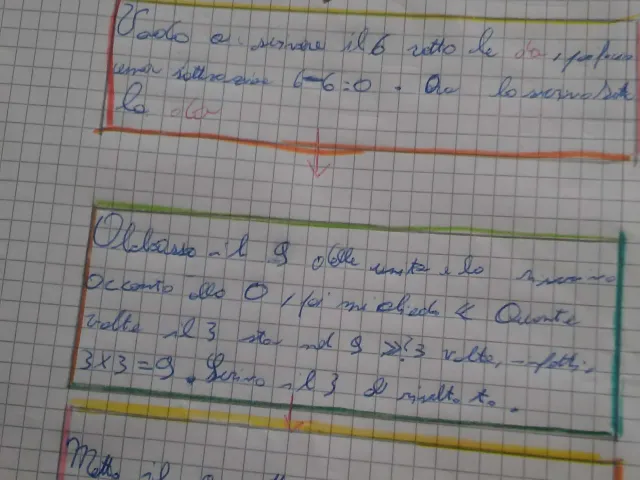 Vado a scrivere il 6 sotto le da, e poi faccio
una sottrazione 6-6=0. Ora lo scrivo sotto
la da
Abbasso il 9 delle unità e lo scrivo
accanto allo 0, poi mi chiedo « Quante
volte il 3 sta nel 9 »? 3 volte, infatti
3x3=9. Scrivo il 3 al risultato.
Metto il